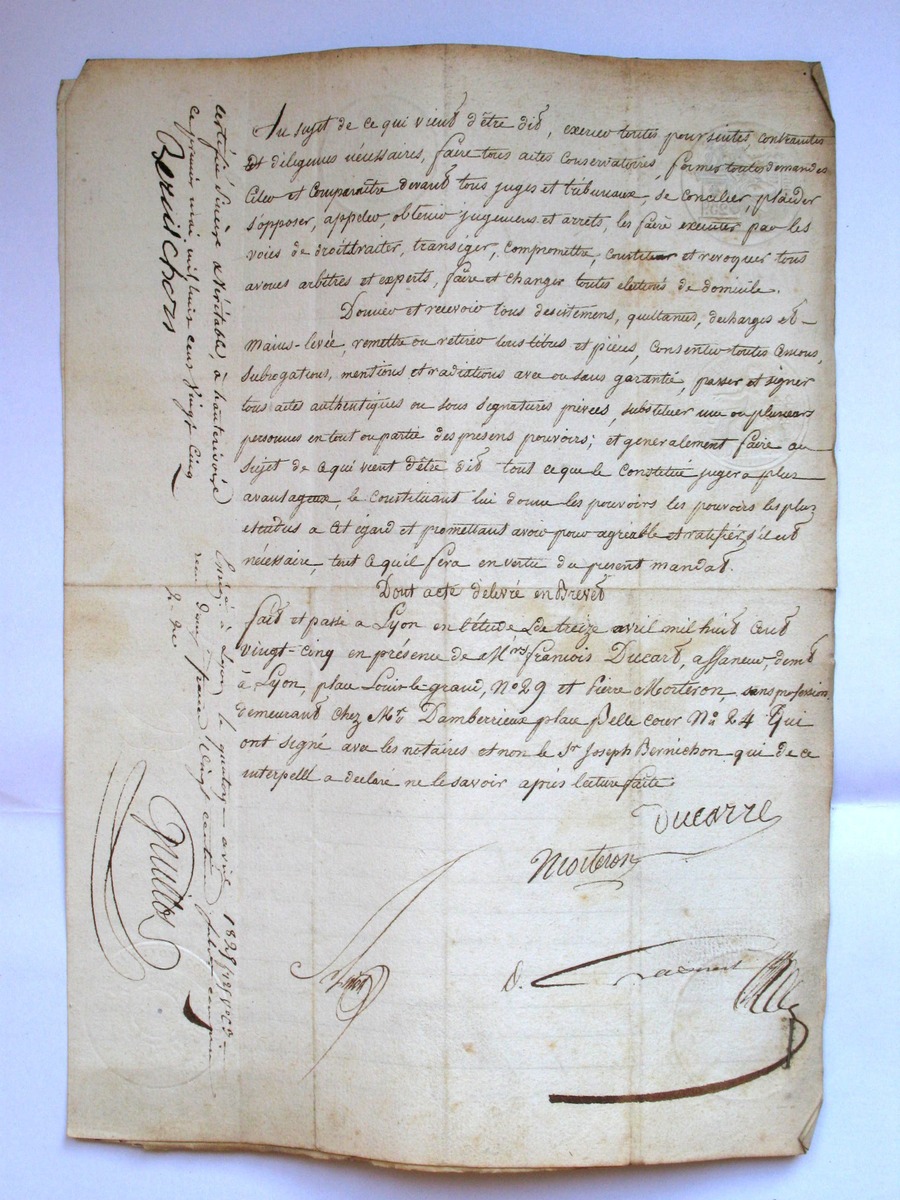 Au sujet de ce qui vient d'être dit, exercer toutes poursuites, contraintes
et diligences nécessaires, faire tous actes Conservatoires, former toutes demandes
Citer et Comparaître devant tous juges et tribunaux se Concilier, plaider
s'opposer, appeler, obtenir jugemens et arrets, les faire executer par les
voies de droit traiter, transiger, compromettre, constituer et revoquer tous
avoues arbitres et experts, faire et changer toutes elections de domicile.
Donner et recevoir tous desistemens, quittances, décharges et
Mains-levée, remettre ou retirer tous titres et pièces, Consentir toutes
subrogations, mentions et radiations avec ou sans garantie, passer et signer
tous actes authentiques ou sous signatures privées, substituer une ou plusieurs
personnes en tout ou partie des presens pouvoirs; et generalement faire au
sujet de ce qui vient d'être dit tout ce que le Constitué jugera plus
avantageux, le Constituant lui donne les pouvoirs les pouvoirs les plus
etendus a cet égard et promettant avoir pour agréable et ratifier s'il est
nécessaire, tout ce qu'il fera en vertu du present mandat.
Dont acte délivré en Brevet
fait et passé a Lyon en l'étude Le treize avril mil huit Cent
Vingt-Cinq en présence de Mrs françois Ducart, demt
à Lyon, place Louis-le-grand, No 29 et Pierre Morteron, sans profession
demeurant chez Mr Damberrieux place Belle cour No 24 Qui
ont signé avec les notaires et non le Sr Joseph Bernichon qui de ce
interpellé a declaré ne le savoir après lecture faite
Ducarre
Morteron
certifié sincère & Véritable, à hauterivoire
ce premier mai mil huit cent vingt cinq
Bernichon
Enreg. à Lyon le quatorze avril 1825